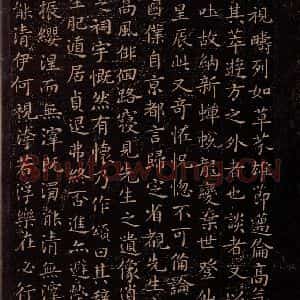 視疇列如草芥雄節邁倫高
其萃遊方之外者也談者又
吐故納新蟬蛻龍變棄世登仙
星辰此又奇怪惚怳不可備論
僕自京都言歸定省覩先生
高風徘徊路寢見先生之遺像逍
之祠宇慨然有懷乃作頌曰其辭
生肥遁居貞退弗終否進亦避榮
振纓涅而無滓既濁能清無滓
能清伊何視洿若浮樂在必行
Shufawang.CN